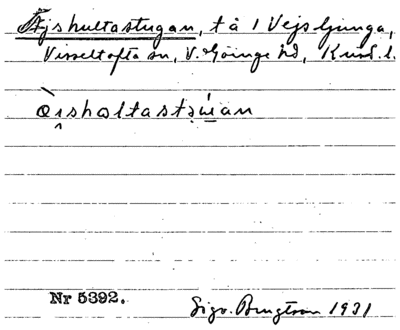 Äjshultastugan, t å 1 Vejsljunga,
Visseltofta sn, V. Göinge hd, Krist. l.
Nr 5392. Sigv. Bengtson 1931